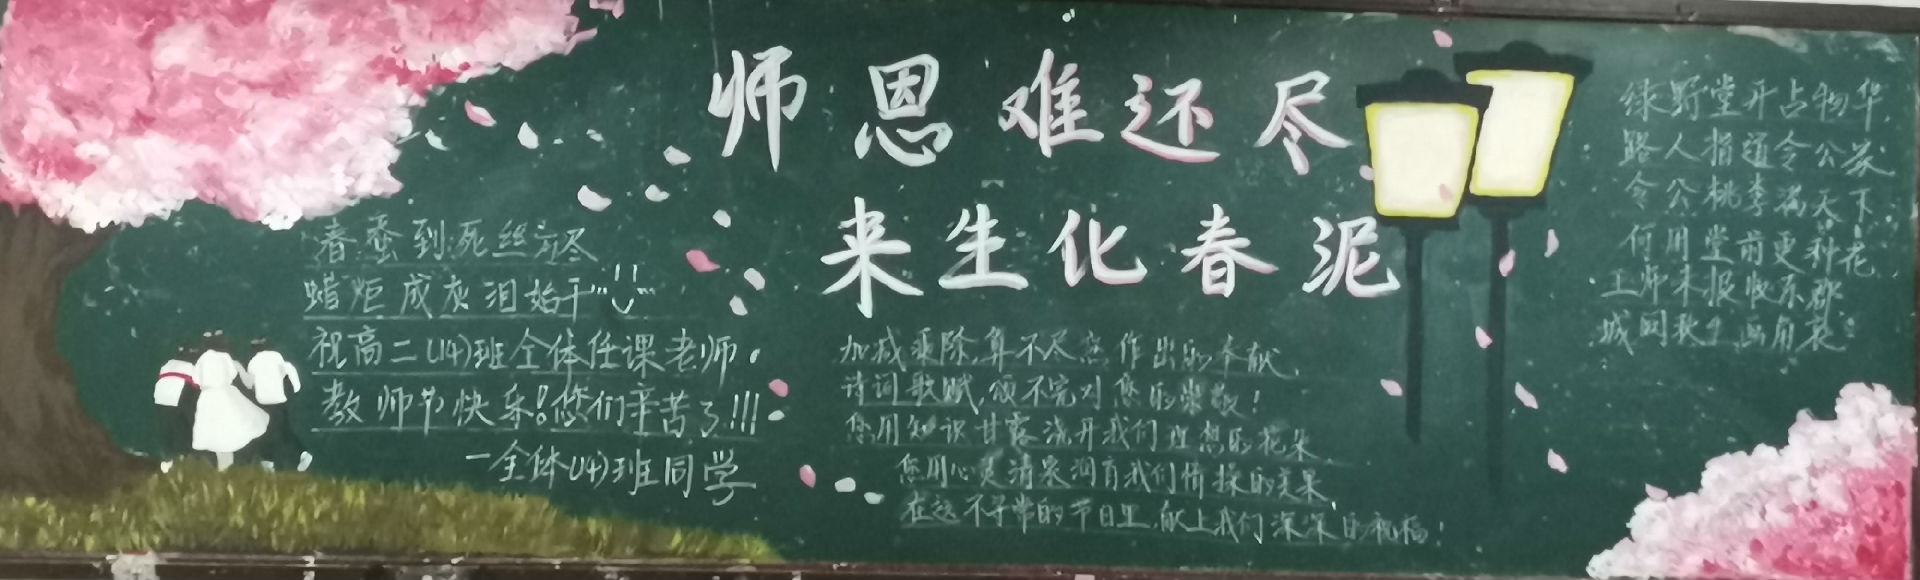 师恩难还尽
来生化春泥
春蚕到死丝方尽
蜡炬成灰泪始干
祝高二(14)班全体任课老师.
教师节快乐!您们辛苦了!!!
一全体(14)班同学
加减乘除,算不尽您作出的奉献,
诗词歌赋,颂不完对您的崇敬!
您用知识甘露浇开我们理想的花朵
您用心灵清泉润育我们情操的美果,
在这不寻常的节日里,献上我们深深的祝福!
绿野堂开占物华,
路人指道令公家
令公桃李满天下,
何用堂前更种花
王师未报收东郡
城阙秋生画角哀